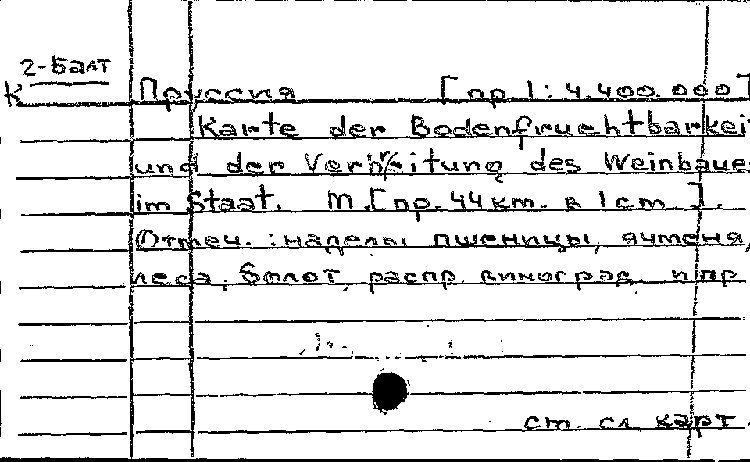 2-Балт
К Пруссия [пр 1:4.400.000]
Karte der Bodenfruchtbarkeit
und der Verbreitung des Weinbaues
im Staat. М.[пр. 44 км. в 1 cm.].
Отмеч.: наделы пшеницы, ячменя,
леса, болот, распр. виноград. и пр
см. сл. карт.